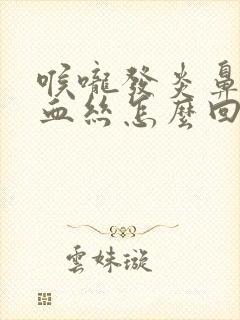 喉嚨發炎鼻
血絲怎麼回
雲妹璇